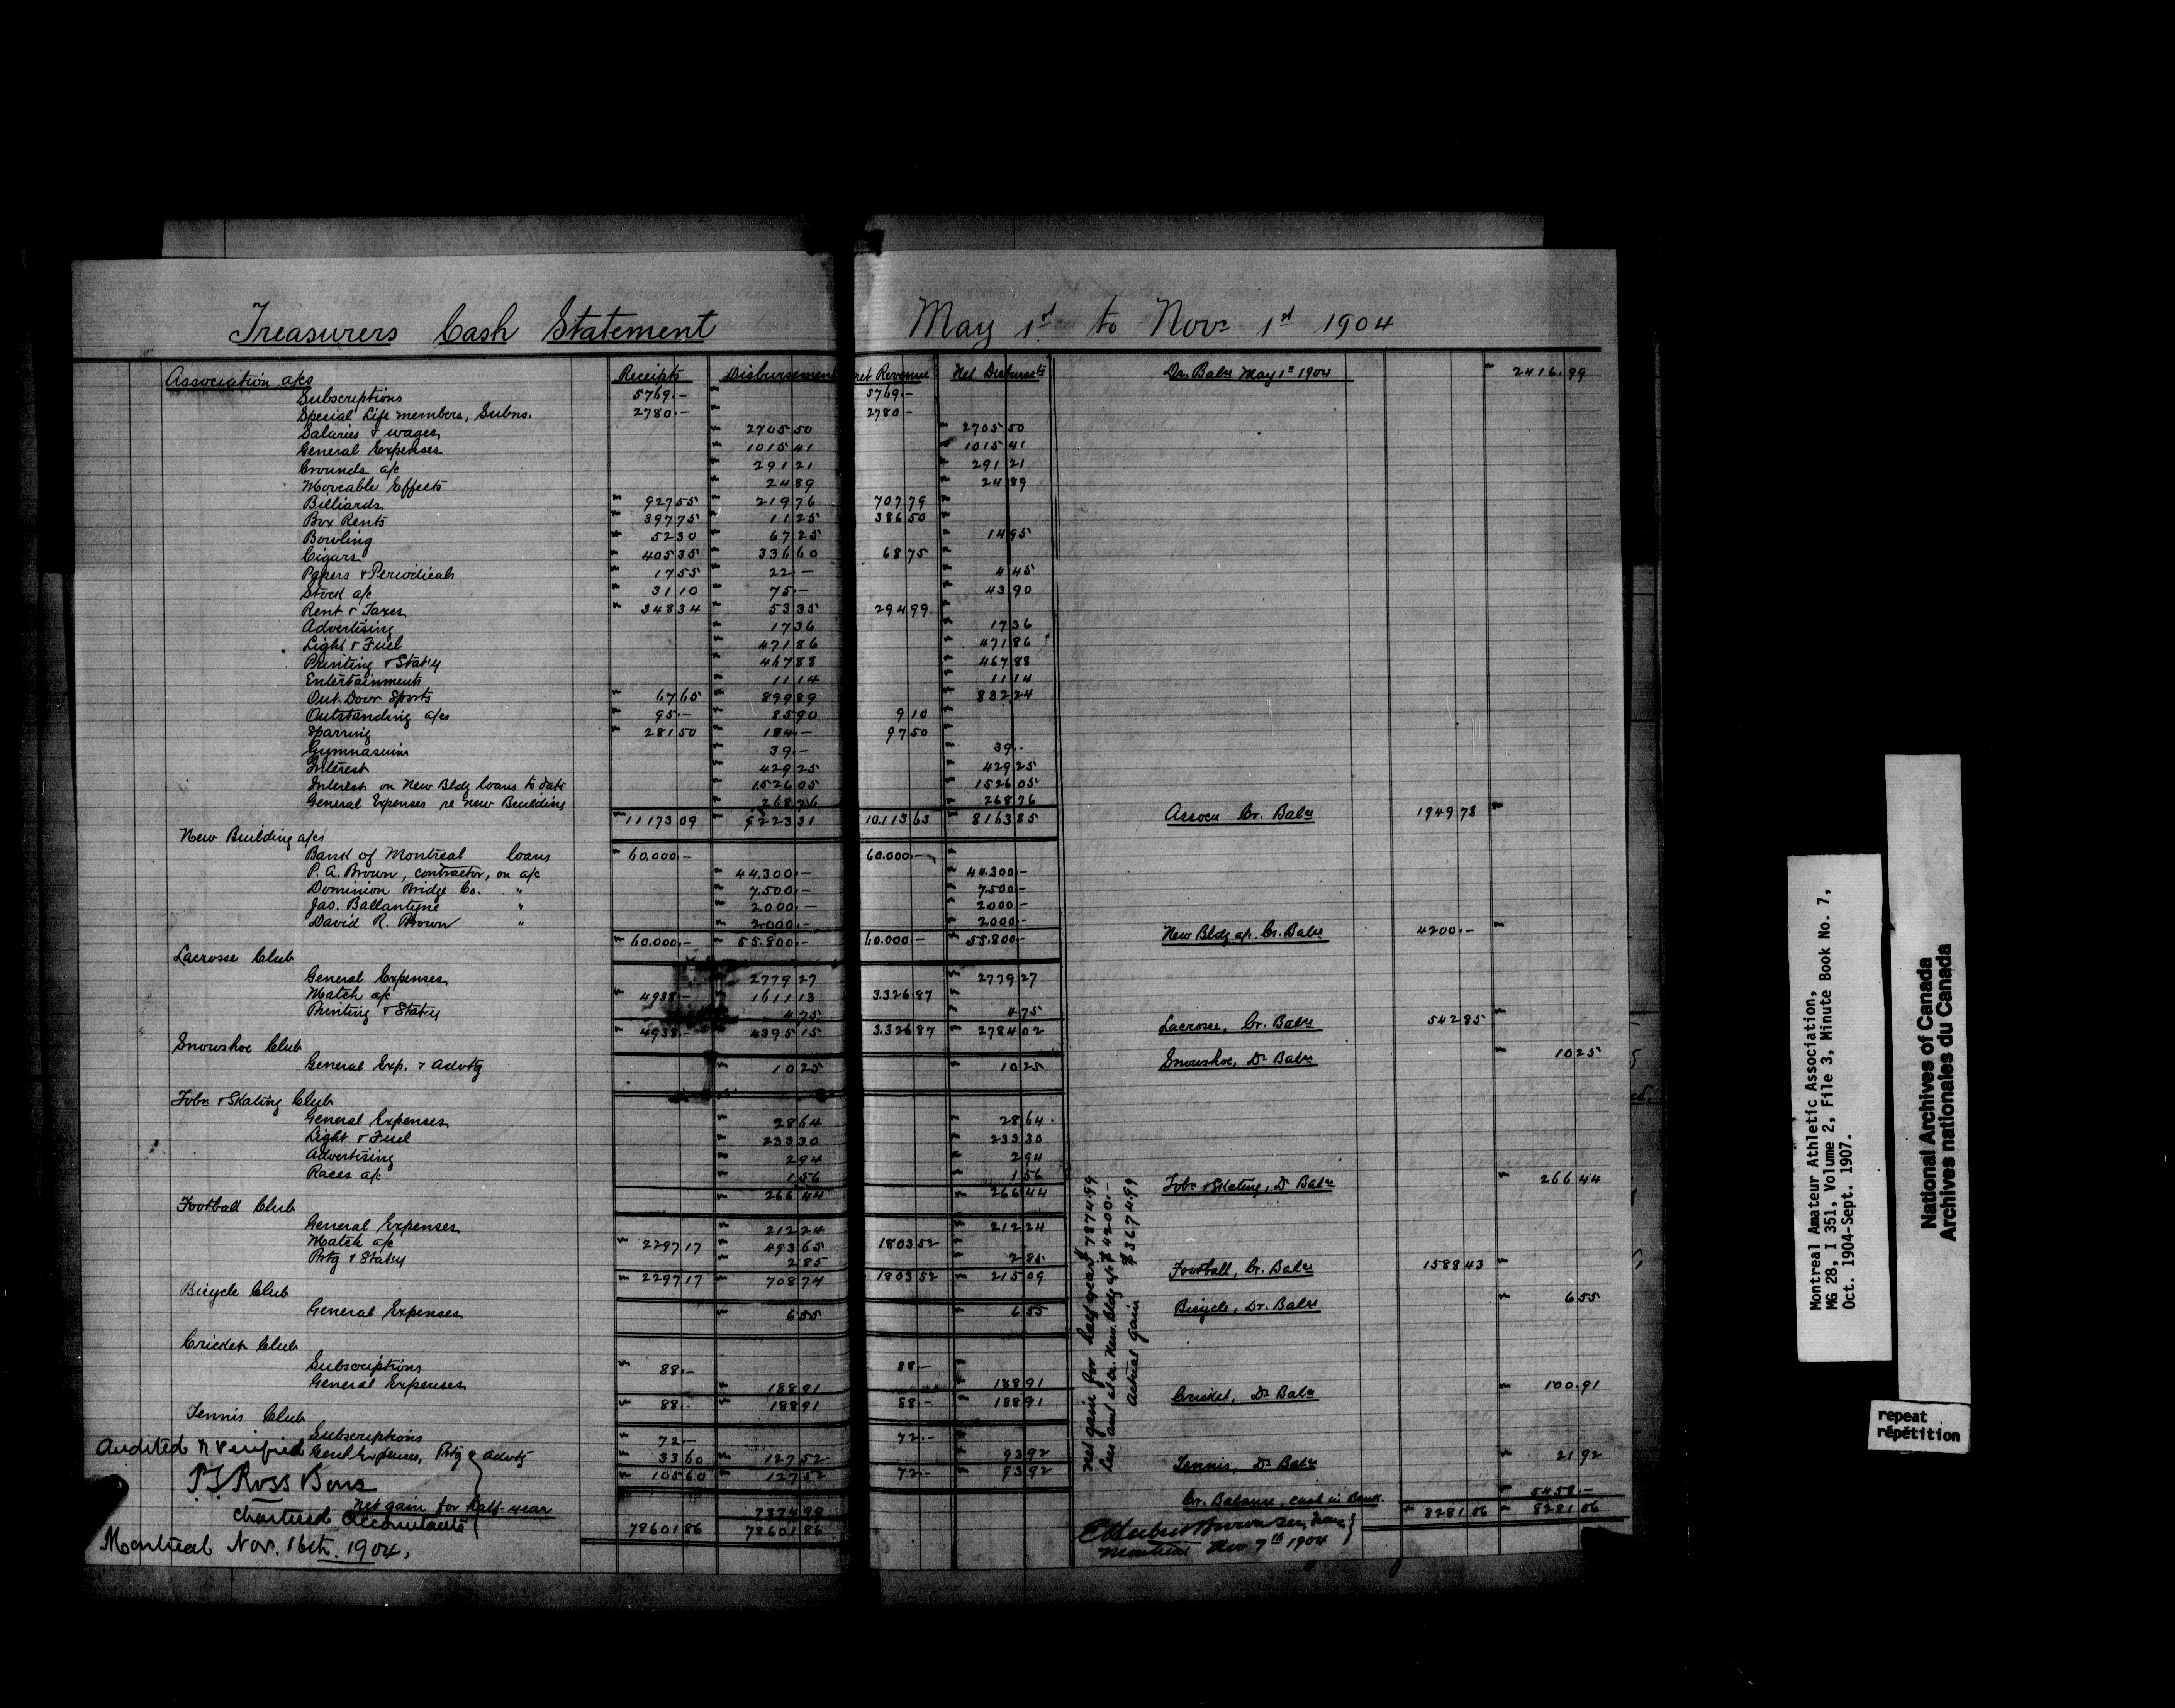 Treasurers Cash Statement May 1st to Novr 1st 1904
Association a/cs Receipts Disbursements Net Revenue Net Disbursts Dr. Balce May 1st 1904 " 2416.99
Subscriptions 5769.- " 5769.-
Special Life members, Subns. 2780.- " 2780.-
Salaries & wages " 2705 50 " 2705 50
General Expenses " 1015 41 " 1015 41
Grounds a/c " 291 21 " 291 21
Moveable Effects " 24 89 " 24 89
Billiards " 927 55 " 219 76 707 79 "
Box Rents " 397 75 " 11 25 386 50 "
Bowling " 52 30 " 67 25 " 14 95
Cigars " 405 35 " 336 60 68 75 "
Papers & Periodicals " 17 55 " 22.- " 4 45
Stock a/c " 31 10 " 75.- " 43 90
Rent & Taxes " 348 34 " 53 35 294 99 "
Advertising " 17 36 " 17 36
Light & Fuel " 471 86 " 471 86
Printing & Stat'y " 467 88 " 467 88
Entertainments " 11 14 " 11 14
Out-Door Sports " 67 65 " 899 89 " 832 24
Outstanding a/cs " 95.- " 85 90 9 10 "
Sparring " 281 50 " 184.- 97 50 "
Gymnasium " 39.- " 39.-
Interest " 429 25 " 429 25
Interest on New Bldg loans to date " 1526 05 " 1526 05
General Expenses re New Building " 268 76 " 268 76
" 11173 09 " 9223 31 10.113 63 " 8163 85 Assocn Cr. Balce 1949 78 "
New Building a/cs
Bank of Montreal loans " 60.000.- 60.000.- "
P. A. Brown, contractor, on a/c " 44.300.- " 44.300.-
Dominion Bridge Co. " " 7.500.- " 7.500.-
Jas. Ballantyne " " 2.000.- " 2000.-
David R. Brown " " 2.000.- " 2000.-
" 60.000.- " 55.800.- 60.000.- " 55.800.- New Bldg a/c. Cr. Balce 4200.- "
Lacrosse Club
General Expenses 2779 27 " 2779 27
Match a/c " 4938.- 1611 13 3.326 87 "
Printing & Stat'y 4 75 " 4 75
" 4938.- 4395 15 3.326 87 " 2784 02 Lacrosse, Cr. Balce 542 85 "
Snowshoe Club
General Exp. & Advtg " 10 25 " 10 25 Snowshoe, Dr Balce " 10 25
Tobn & Skating Club
General Expenses " 28 64 " 28 64
Light & Fuel " 233 30 " 233 30
Advertising " 2 94 " 2 94
Races a/c " 1 56 " 1 56
" 266 44 " 266 44 Tobn & Skating, Dr Balce " 266 44
Football Club
General Expenses " 212 24 " 212 24
Match a/c " 2297 17 " 493 65 1803 52 "
Prtg & Stat'y " 2 85 " 2 85
" 2297 17 " 708 74 1803 52 " 215 09 Football, Cr. Balce 1588 43 "
Bicycle Club
General Expenses " 6 55 " 6 55 Bicycle, Dr. Balce " 6 55
Cricket Club
Subscriptions " 88.- 88.- "
General Expenses " 188 91 " 188 91
" 88.- " 188 91 88.- " 188 91 Cricket, Dr Balce " 100.91
Tennis Club
Subscriptions " 72.- 72.- "
Genl Expenses, Prtg & Advtg " 33 60 " 127 52 " 93 92
" 105 60 " 127 52 72.- " 93 92 Tennis, Dr Balce " 21 92
Net gain for half-year 7874 99 Cr. Balance, cash in Bank. " 5458.-
78601 86 78601 86 " 8281 06 " 8281 06
Net gain for half year $7874.99
Less amt at cr. New Bldg a/c $4200.-
Actual gain $3674.99
Audited & Verified
P. S. Ross & Sons
Chartered Accountants
Montreal Nov. 16th. 1904.
Montreal Nov. 7th 1904
Montreal Amateur Athletic Association,
MG 28, I 351, Volume 2, File 3, Minute Book No. 7,
Oct. 1904-Sept. 1907.
National Archives of Canada
Archives nationales du Canada
repeat
répétition